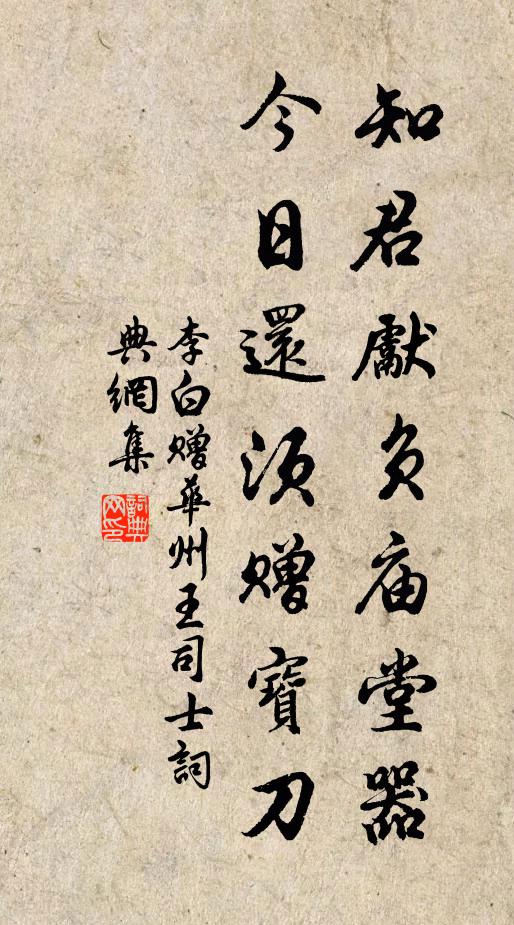 知君獻負庙堂器
今日還須贈寶刀
李白赠華州王司士詞
典網集
詞典网印